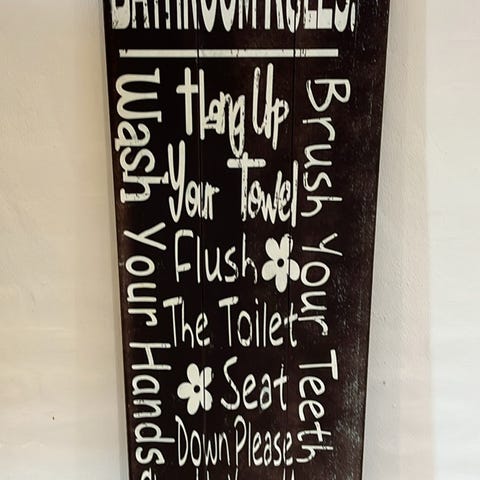 BATHROOM RULES!
Wash Your Hands
Hang Up
Your Towel
Flush
The Toilet
Seat
Down Please
Brush Your Teeth